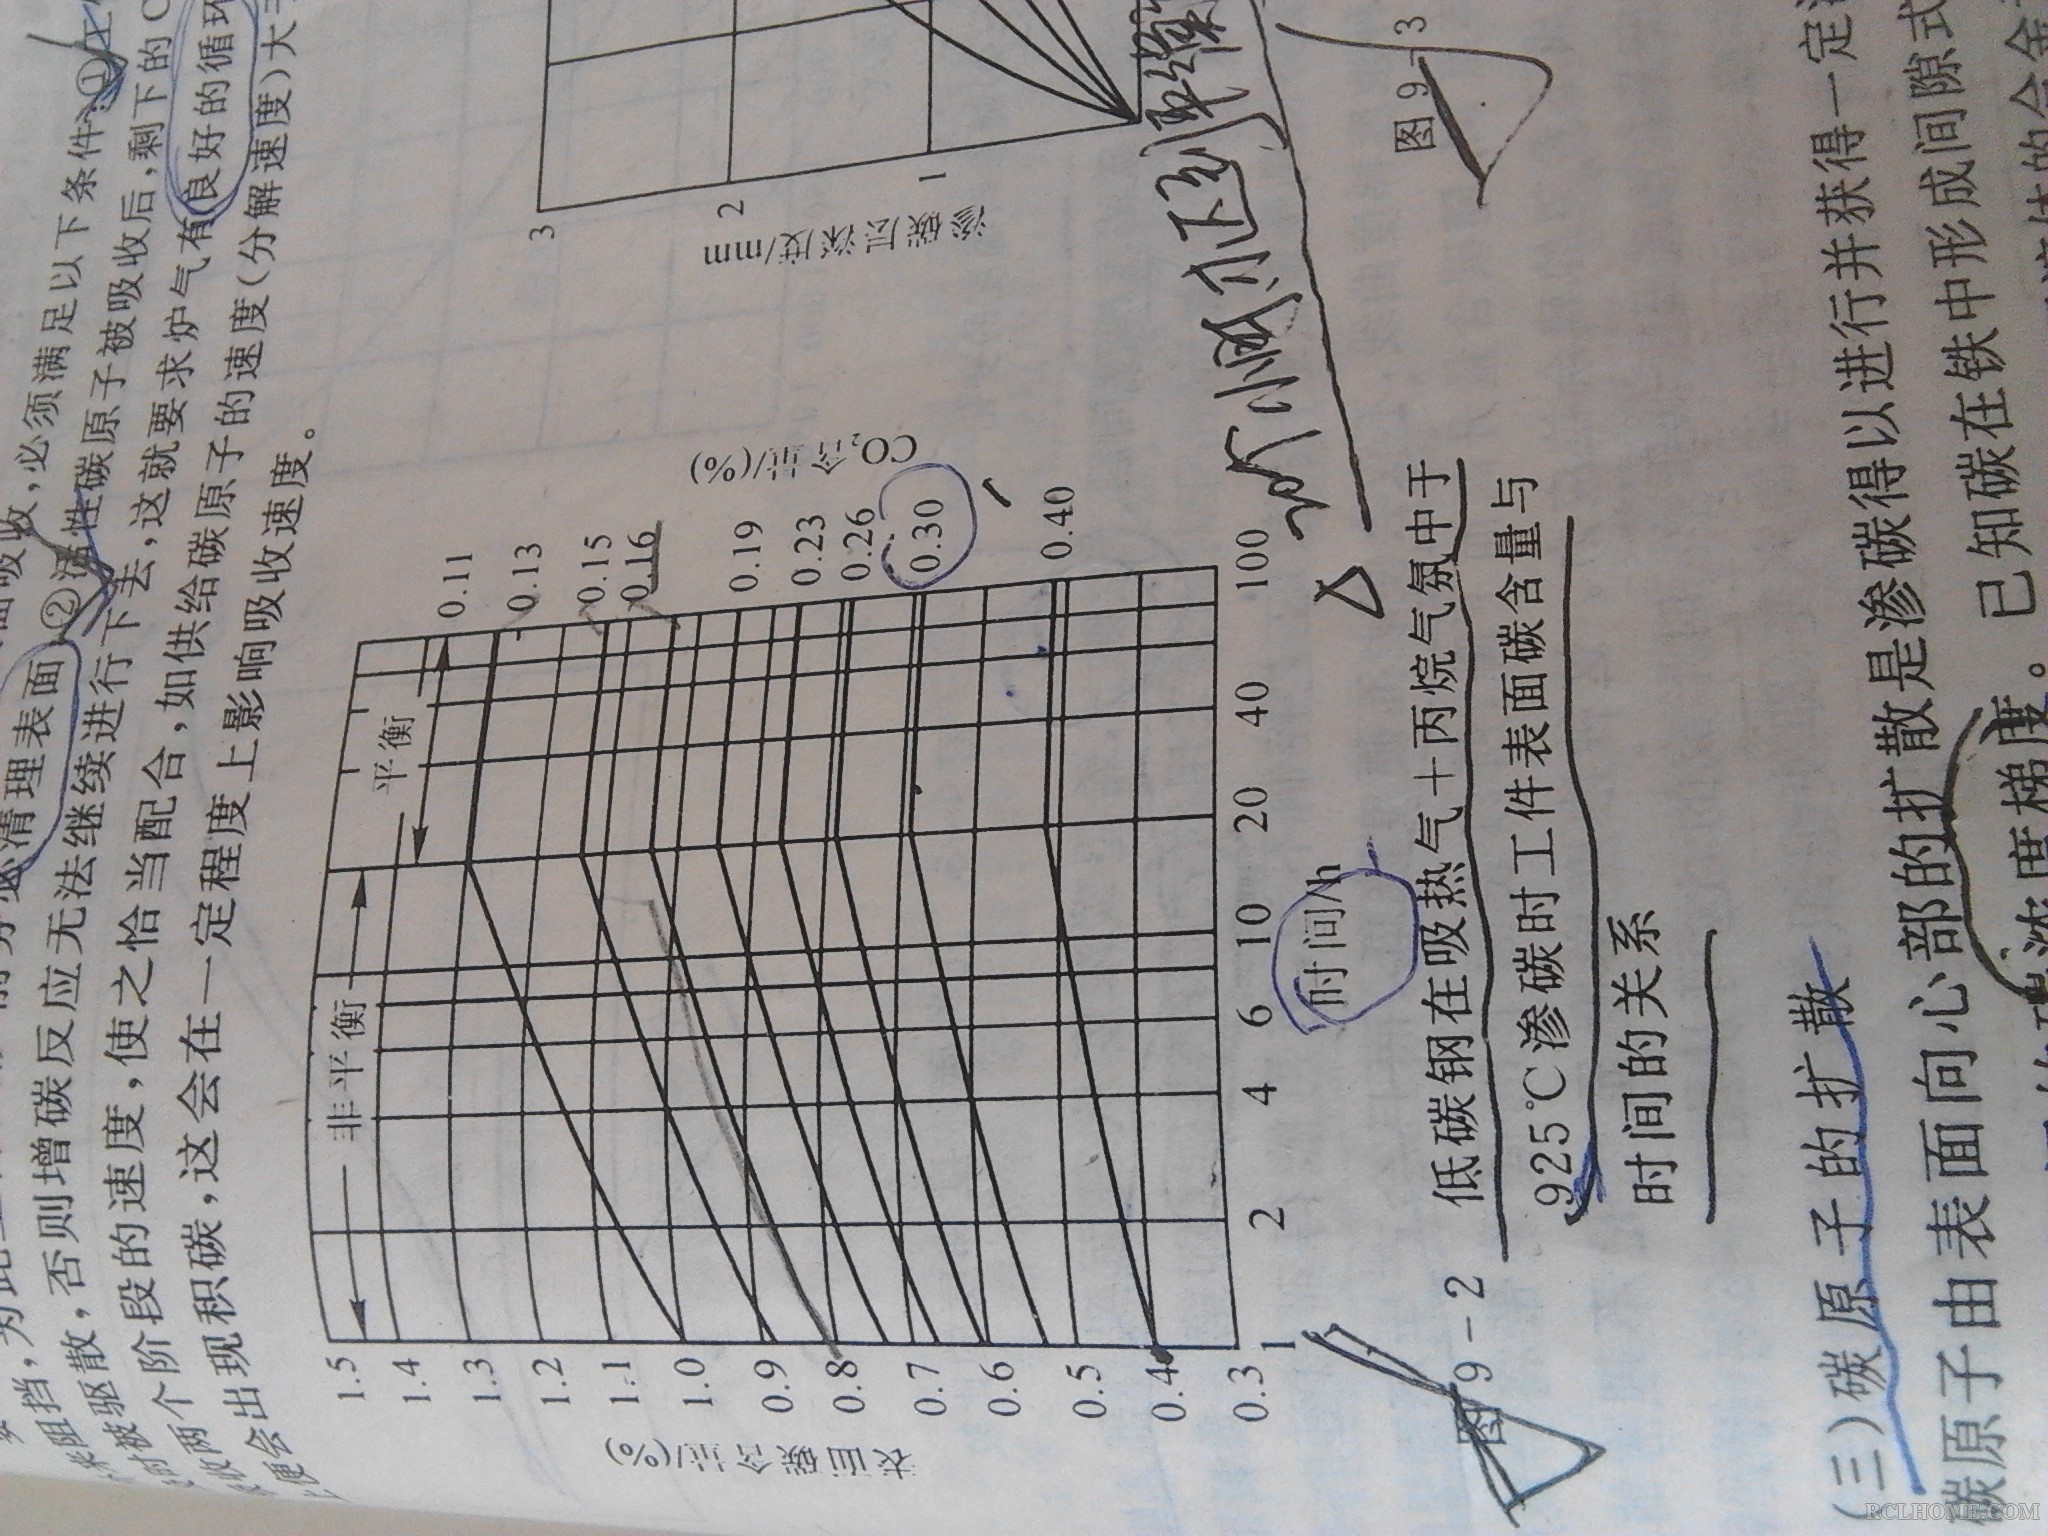 面吸收,必须满足以下条件:①工
必清理表面。②活性碳原子被吸收后,剩下的C
被驱散,否则增碳反应无法继续进行下去,这就要求炉气有良好的循环
两个阶段的速度,使之恰当配合,如供给碳原子的速度(分解速度)大
便会出现积碳,这会在一定程度上影响吸收速度。
表面碳含量/(%)
1.5
1.4
1.3
1.2
1.1
1.0
0.9
0.8
0.7
0.6
0.5
0.4
0.3
非平衡
平衡
CO₂含量/(%)
0.11
0.13
0.15
0.16
0.19
0.23
0.26
0.30
0.40
1 2 4 6 10 20 40 100
时间/h
图9-2 低碳钢在吸热气+丙烷气氛中于
925℃渗碳时工件表面碳含量与
时间的关系
渗碳层深度/mm
3
2
1
图9-3
(三)碳原子的扩散
碳原子由表面向心部的扩散是渗碳得以进行并获得一定
浓度梯度。已知碳在铁中形成间隙式
RCLHOME.COM